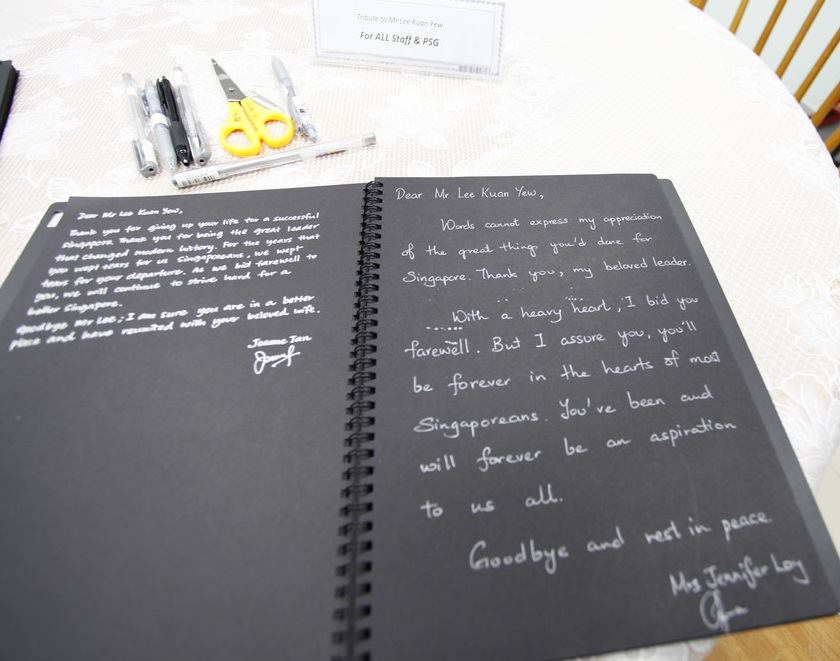 Tribute to Mr Lee Kuan Yew
For ALL Staff & PSG
Dear Mr Lee Kuan Yew,
Thank you for giving up your life for a successful
Singapore. Thank you for being the great leader
that changed modern history. For the years that
you wept tears for us Singaporeans, we wept
tears for your departure. As we bid farewell to
you, we will continue to strive hard for a
better Singapore.
Goodbye Mr Lee; I am sure you are in a better
place and have reunited with your beloved wife.
Joanne Tan
Dear Mr Lee Kuan Yew,
Words cannot express my appreciation
of the great things you'd done for
Singapore. Thank you, my beloved leader.
With a heavy heart, I bid you
farewell. But I assure you, you'll
be forever in the hearts of most
Singaporeans. You've been and
will forever be an aspiration
to us all.
Goodbye and rest in peace.
Mrs Jennifer Loy